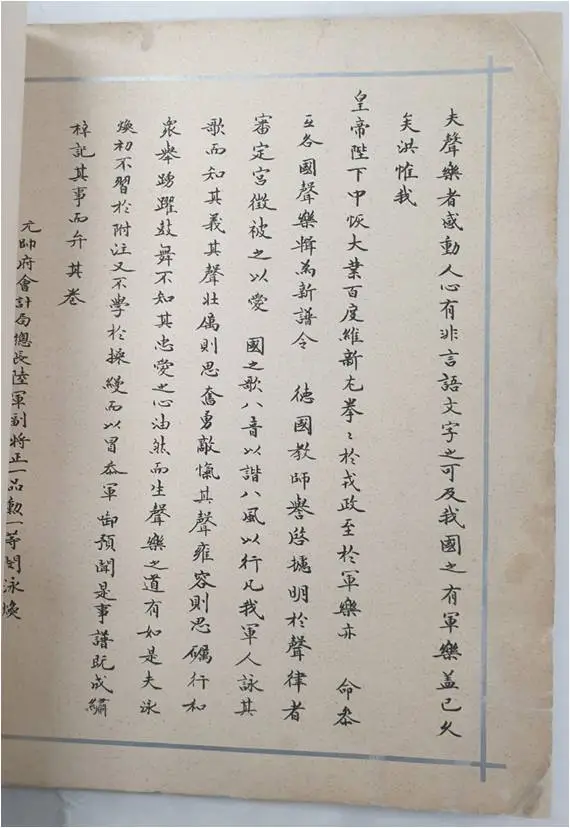 夫聲樂者感動人心有非言語文字之可及我國之有軍樂盖已久
矣洪惟我
皇帝陛下中恢大業百度維新尤拳〻於戎政至於軍樂亦 命叅
互各國聲樂輯爲新譜令 德國教師 啓 明於聲律者
審定宮徵被之以愛 國之歌八音以諧八風以行凡我軍人詠其
歌而知其義其聲壯厲則思奮勇敵愾其聲雍容則思礪行和
衆舉踴躍鼓舞不知其忠愛之心油然而生聲樂之道有如是夫泳
煥初不習於附注又不學於操縵而以冒忝軍 啣預聞是事譜旣成繡
梓記其事而弁 其卷
元帥府會計局總長陸軍副將正一品勳一等閔泳煥